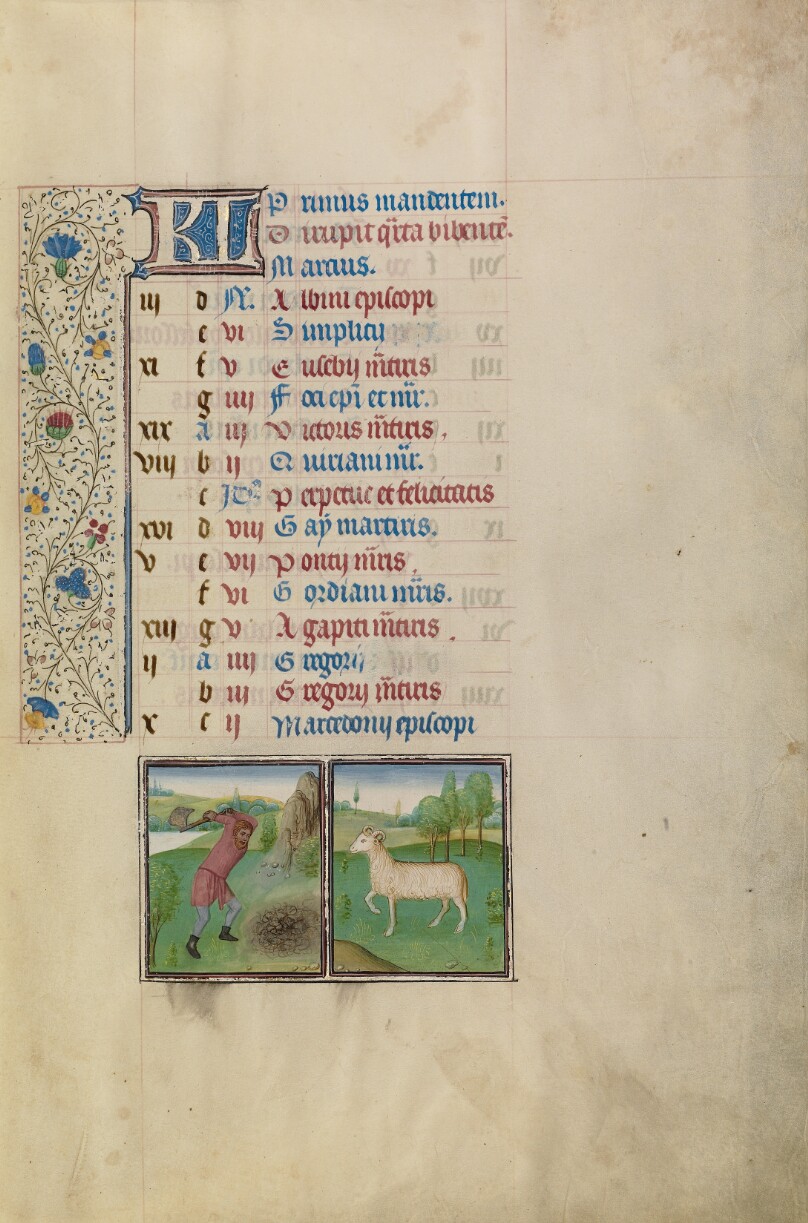 KL Primus mandentem.
Dirupit q̄rta bibentē.
Marcius.
iii d N. Albini episcopi
e vi Simplicii
xi f v Eusebij m̄tiris
g iiij Foci epī et mr̄.
xix a iij Victoris m̄tiris.
viii b ij Quiriani mr̄.
c Perpetue et felicitatis
xvi d viij Gaÿ martiris.
v e vij Pontij mr̄is.
f vi Gordiani mr̄is.
xiii g v Agapiti m̄tiris.
ij a iiij Gregorij
b iij Gregorij m̄tiris
x c ij Marcedonij episcopi